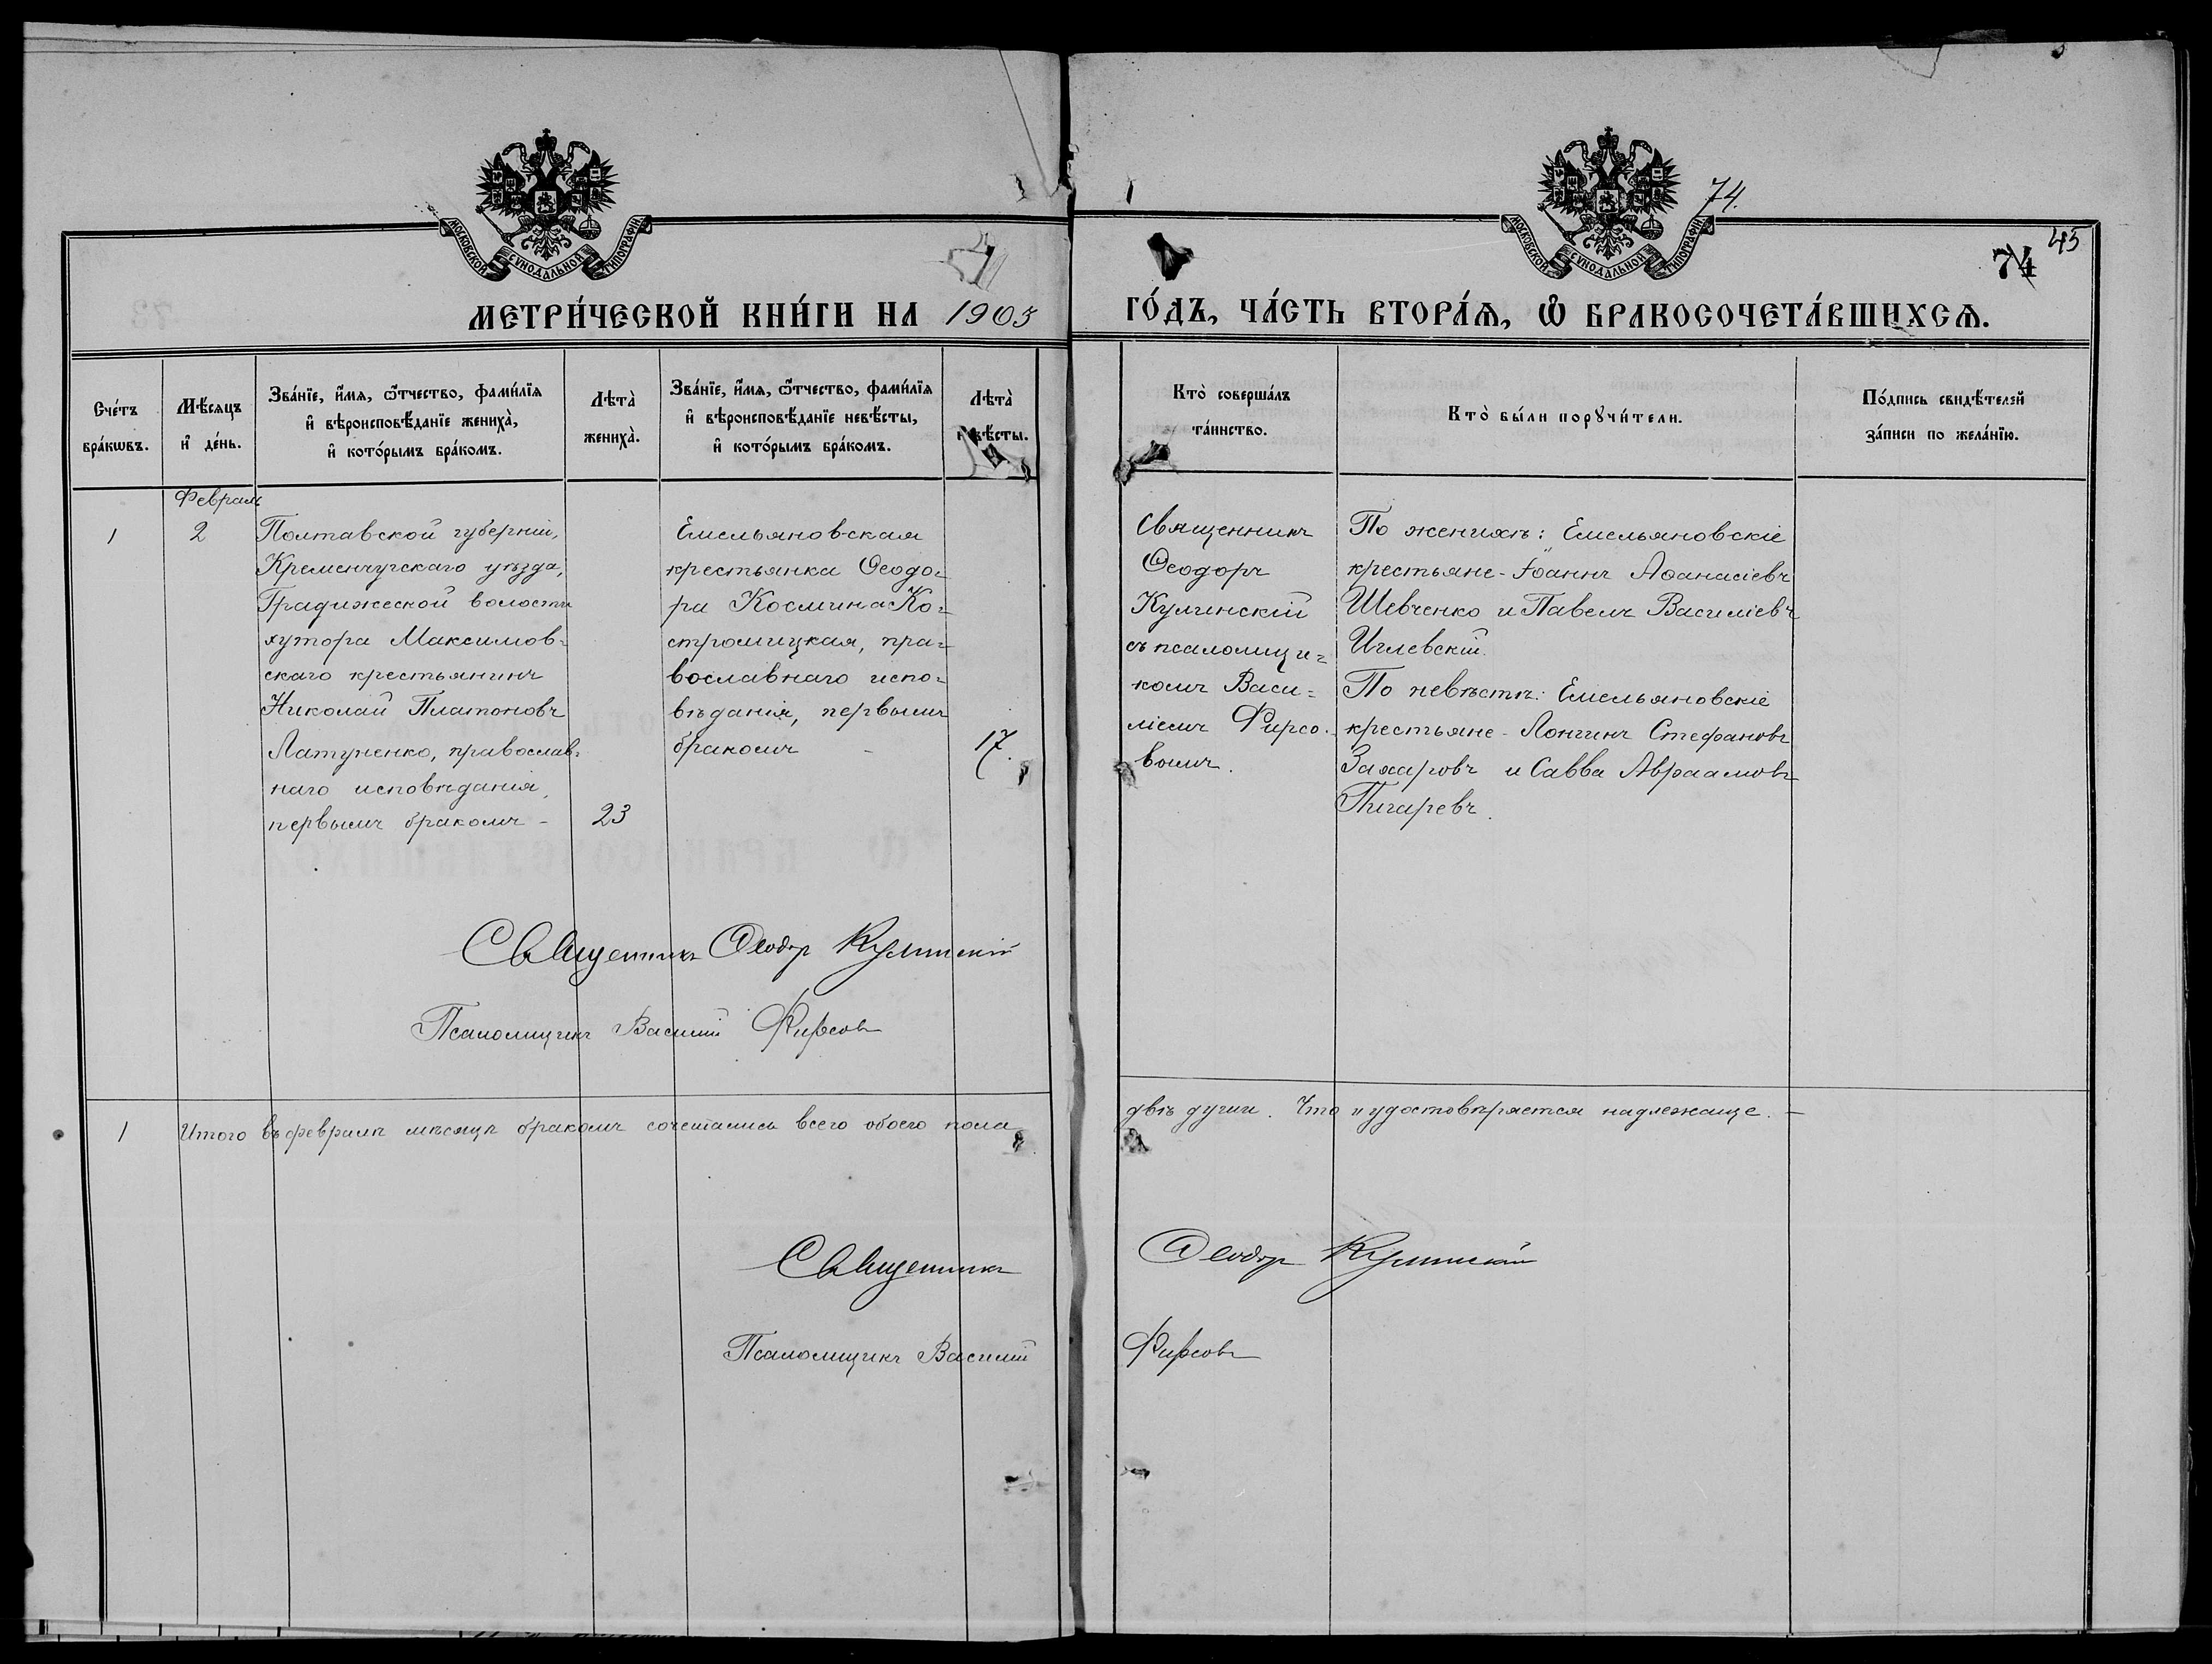 74.
45
74
МОСКОВСКОЙ СУНОДАЛЬНОЙ ТИПОГРАФІИ
МОСКОВСКОЙ СУНОДАЛЬНОЙ ТИПОГРАФІИ
МЕТРИ́ЧЕСКОЙ КНИ́ГИ НА 1905 ГО́ДЪ, ЧА́СТЬ ВТОРА́Ѧ, Ѡ҆ БРАКОСОЧЕТА́ВШИХСѦ.
Сче́тъ
бра́кѡвъ.
Мѣ́сѧцъ
и҆ де́нь.
Зва́нїе, и҆́мѧ, ѻ҆́тчество, фами́лїѧ
и҆ вѣроисповѣ́данїе жениха̀,
и҆ кото́рымъ бра́комъ.
Лѣта̀
жениха̀.
Зва́нїе, и҆́мѧ, ѻ҆́тчество, фами́лїѧ
и҆ вѣроисповѣ́данїе невѣ́сты,
и҆ кото́рымъ бра́комъ.
Лѣта̀
невѣ́сты.
Кто̀ соверша́лъ
та́инство.
Кто̀ бы́ли порꙋчи́тели.
По́дпись свидѣ́телей
за́писи по жела́нїю.
Февраль
1
2
Полтавской губерніи,
Кременчугскаго уѣзда,
Градижеской волости
хутора Максимов=
скаго крестьянинъ
Николай Платоновъ
Латуненко, православ=
наго исповѣданія,
первымъ бракомъ -
23
Емельяновская
крестьянка Ѳеодо=
ра Космина Ко=
стромицкая, пра=
вославнаго испо=
вѣданія, первымъ
бракомъ -
17.
Священникъ
Ѳеодоръ
Кулинскій
съ псаломщи=
комъ Васи=
ліемъ Фирсо.
вымъ.
По женихѣ: Емельяновскіе
крестьяне - Іоаннъ Аѳанасіевъ
Шевченко и Павелъ Василіевъ
Иглевскій.
По невѣстѣ: Емельяновскіе
крестьяне - Лонгинъ Стефановъ
Захаровъ и Савва Авраамовъ
Пигаревъ.
Священникъ Ѳеодоръ Кулинскій
Псаломщикъ Василій Фирсовъ
1 Итого въ февралѣ мѣсяцѣ бракомъ сочетались всего обоего пола двѣ души. Что и удостовѣряется надлежаще. -
Священникъ Ѳеодоръ Кулинскій
Псаломщикъ Василій Фирсовъ